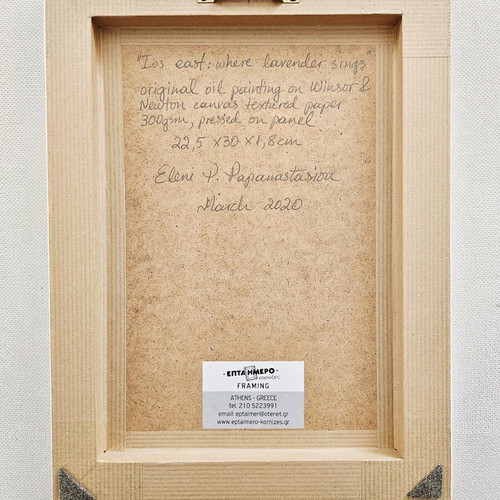 "Ios east: where lavender sings"
original oil painting on Winsor &
Newton canvas textured paper
300gsm, pressed on panel
22,5 x30 x1,8cm
Eleni P. Papanastasiou
March 2020
ΕΠΤΑΗΜΕΡΟ
FRAMING
ATHENS - GREECE
tel. 210 5223991
email: eptaimer@otenet.gr
www.eptaimero-kornizes.gr